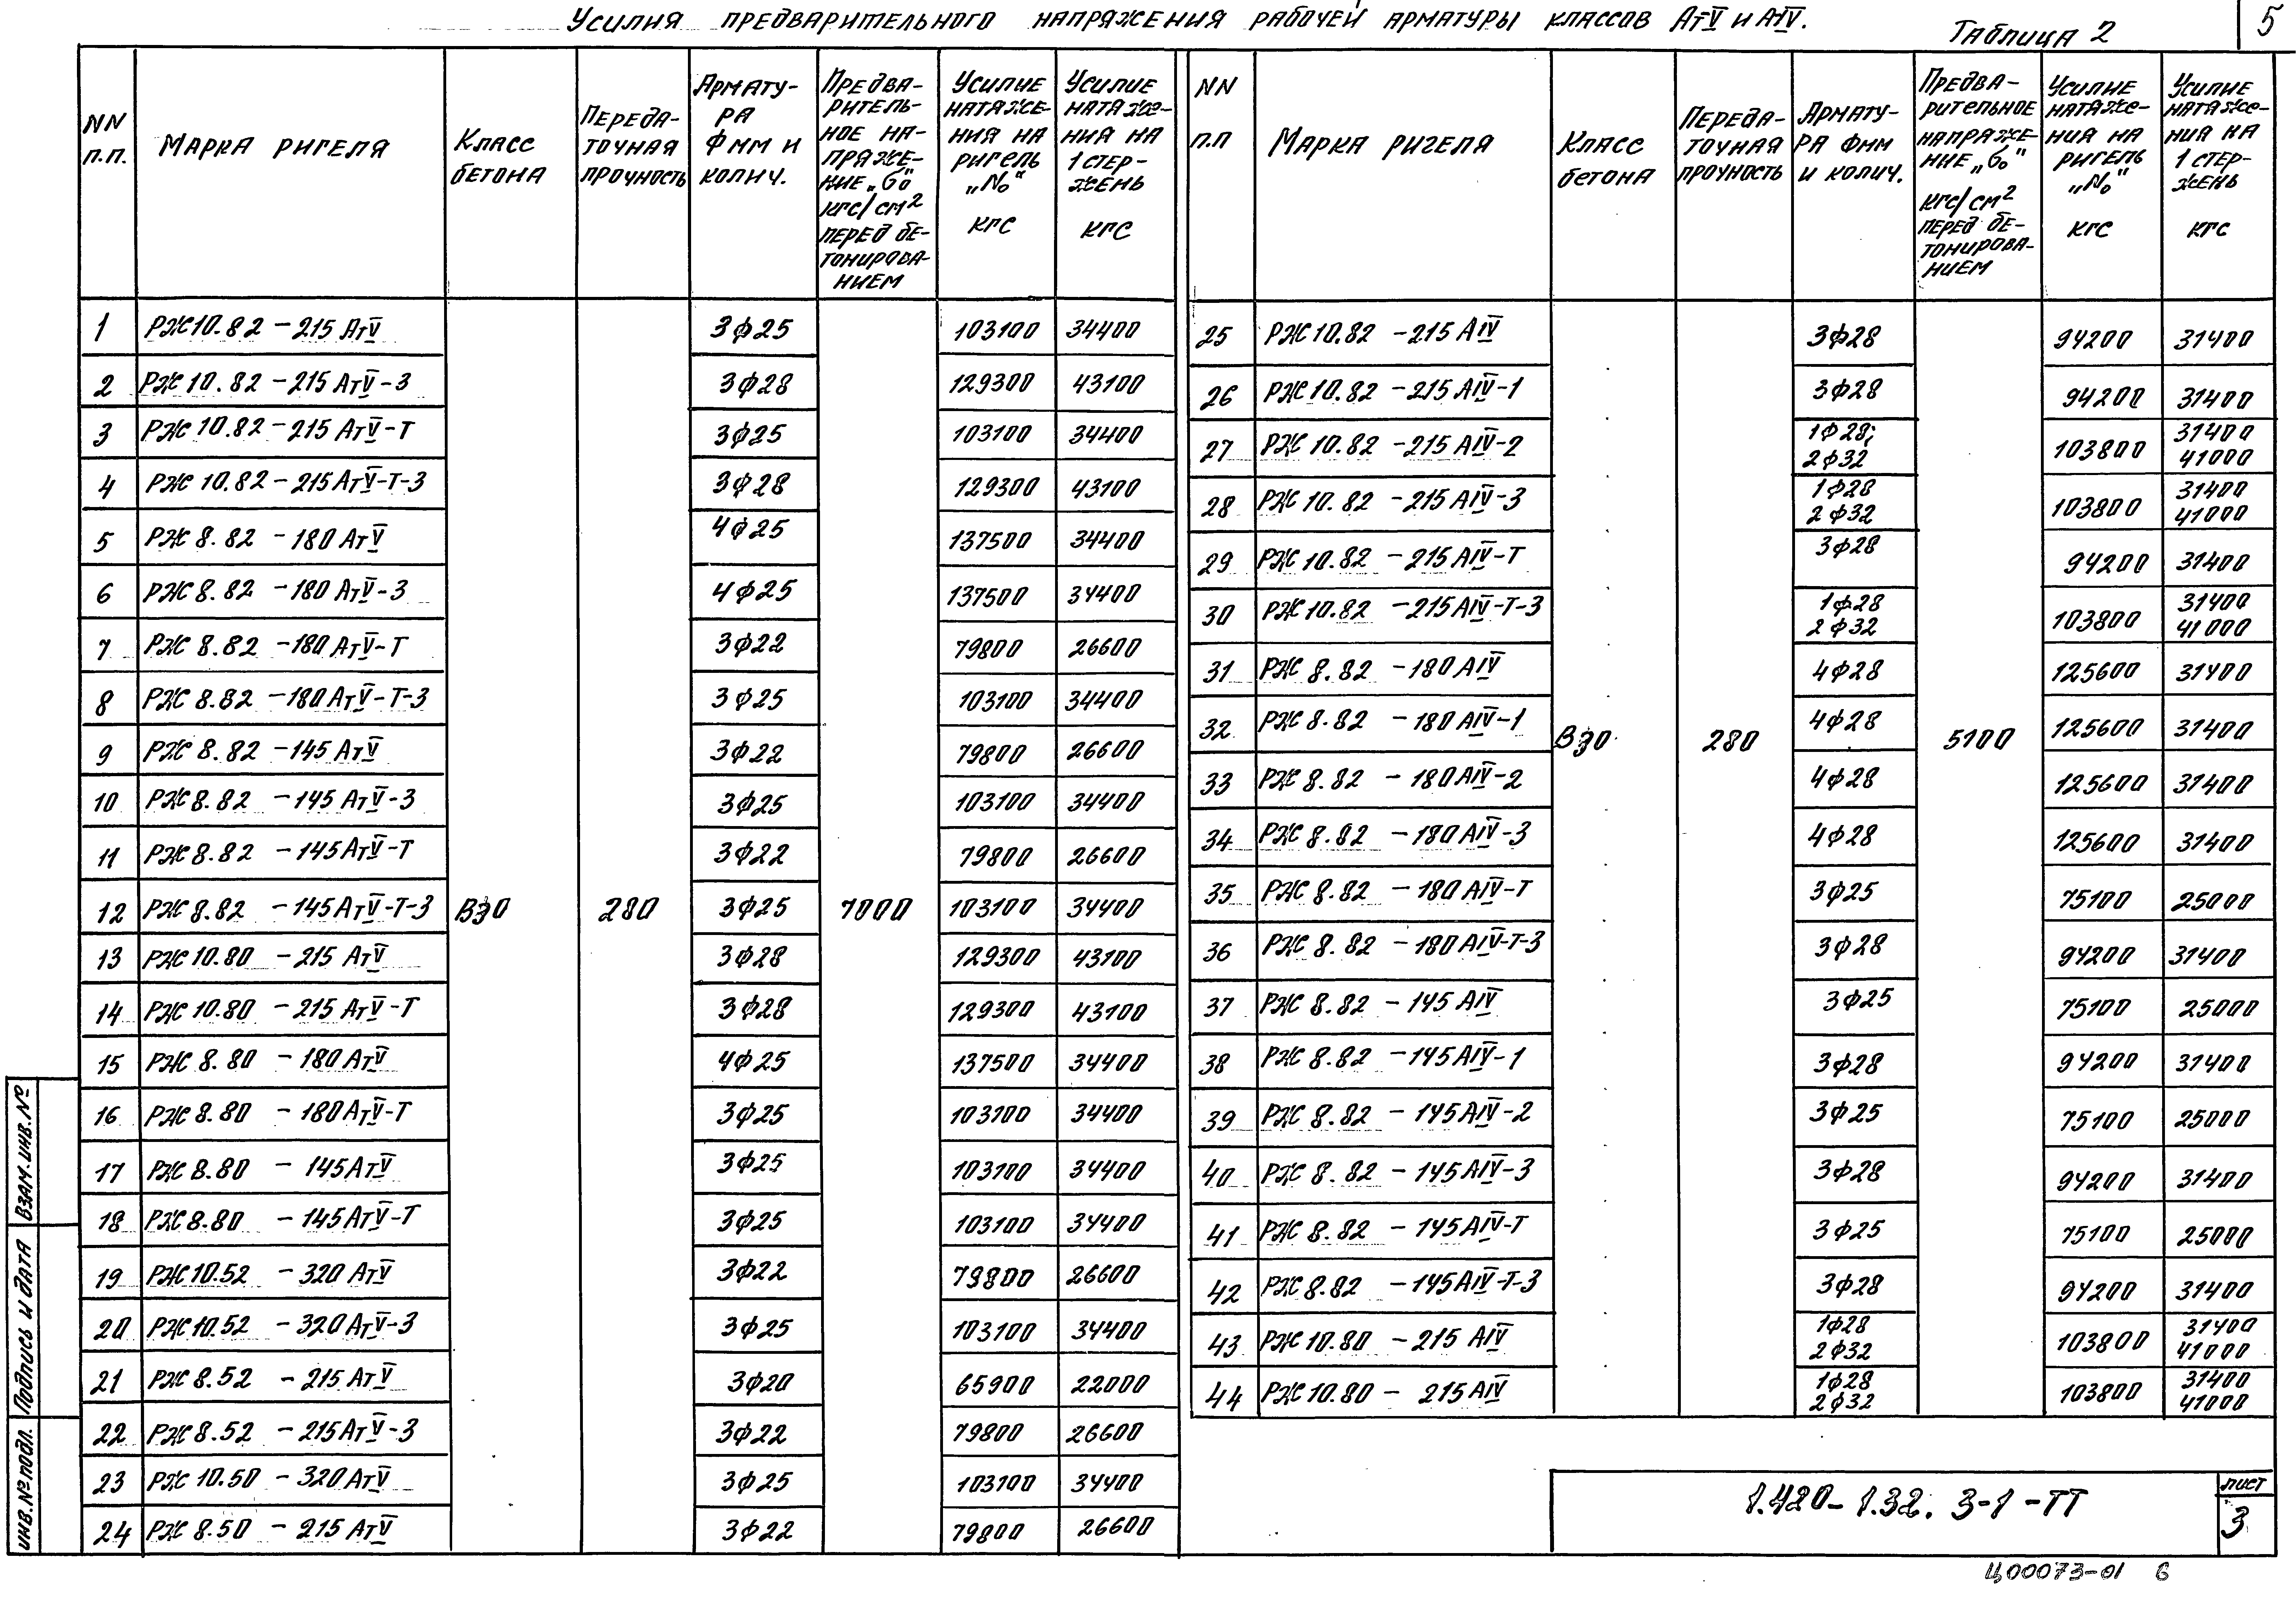 Усилия предварительного напряжения рабочей арматуры классов АтV и АIV.
Таблица 2
5
NN п.п. | Марка ригеля | Класс бетона | Передаточная прочность | Арматура Фмм и колич. | Предварительное напряжение „σ₀" кгс/см² перед бетонированием | Усилие натяжения на ригель „N₀" кгс | Усилие натяжения на 1 стержень кгс
1 | РЖ10.82 - 215 АтV | 3ф25 | 103100 | 34400
2 | РЖ10.82 - 215 АтV-3 | 3ф28 | 129300 | 43100
3 | РЖ10.82 - 215 АтV-Т | 3ф25 | 103100 | 34400
4 | РЖ10.82 - 215 АтV-Т-3 | 3ф28 | 129300 | 43100
5 | РЖ8.82 - 180 АтV | 4ф25 | 137500 | 34400
6 | РЖ8.82 - 180 АтV-3 | 4ф25 | 137500 | 34400
7 | РЖ8.82 - 180 АтV-Т | 3ф22 | 79800 | 26600
8 | РЖ8.82 - 180 АтV-Т-3 | 3ф25 | 103100 | 34400
9 | РЖ8.82 - 145 АтV | 3ф22 | 79800 | 26600
10 | РЖ8.82 - 145 АтV-3 | 3ф25 | 103100 | 34400
11 | РЖ8.82 - 145 АтV-Т | 3ф22 | 79800 | 26600
12 | РЖ8.82 - 145 АтV-Т-3 | В30 | 280 | 3ф25 | 7000 | 103100 | 34400
13 | РЖ10.80 - 215 АтV | 3ф28 | 129300 | 43100
14 | РЖ10.80 - 215 АтV-Т | 3ф28 | 129300 | 43100
15 | РЖ8.80 - 180 АтV | 4ф25 | 137500 | 34400
16 | РЖ8.80 - 180 АтV-Т | 3ф25 | 103100 | 34400
17 | РЖ8.80 - 145 АтV | 3ф25 | 103100 | 34400
18 | РЖ8.80 - 145 АтV-Т | 3ф25 | 103100 | 34400
19 | РЖ10.52 - 320 АтV | 3ф22 | 79800 | 26600
20 | РЖ10.52 - 320 АтV-3 | 3ф25 | 103100 | 34400
21 | РЖ8.52 - 215 АтV | 3ф20 | 65900 | 22000
22 | РЖ8.52 - 215 АтV-3 | 3ф22 | 79800 | 26600
23 | РЖ10.50 - 320 АтV | 3ф25 | 103100 | 34400
24 | РЖ8.50 - 215 АтV | 3ф22 | 79800 | 26600
NN п.п | Марка ригеля | Класс бетона | Передаточная прочность | Арматура Фмм и колич. | Предварительное напряжение „σ₀" кгс/см² перед бетонированием | Усилие натяжения на ригель „N₀" кгс | Усилие натяжения на 1 стержень кгс
25 | РЖ10.82 - 215 АIV | 3ф28 | 94200 | 31400
26 | РЖ10.82 - 215 АIV-1 | 3ф28 | 94200 | 31400
27 | РЖ10.82 - 215 АIV-2 | 1ф28; 2ф32 | 103800 | 31400 41000
28 | РЖ10.82 - 215 АIV-3 | 1ф28 2ф32 | 103800 | 31400 41000
29 | РЖ10.82 - 215 АIV-Т | 3ф28 | 94200 | 31400
30 | РЖ10.82 - 215 АIV-Т-3 | 1ф28 2ф32 | 103800 | 31400 41000
31 | РЖ8.82 - 180 АIV | 4ф28 | 125600 | 31400
32 | РЖ8.82 - 180 АIV-1 | В30 | 280 | 4ф28 | 5100 | 125600 | 31400
33 | РЖ8.82 - 180 АIV-2 | 4ф28 | 125600 | 31400
34 | РЖ8.82 - 180 АIV-3 | 4ф28 | 125600 | 31400
35 | РЖ8.82 - 180 АIV-Т | 3ф25 | 75100 | 25000
36 | РЖ8.82 - 180 АIV-Т-3 | 3ф28 | 94200 | 31400
37 | РЖ8.82 - 145 АIV | 3ф25 | 75100 | 25000
38 | РЖ8.82 - 145 АIV-1 | 3ф28 | 94200 | 31400
39 | РЖ8.82 - 145 АIV-2 | 3ф25 | 75100 | 25000
40 | РЖ8.82 - 145 АIV-3 | 3ф28 | 94200 | 31400
41 | РЖ8.82 - 145 АIV-Т | 3ф25 | 75100 | 25000
42 | РЖ8.82 - 145 АIV-Т-3 | 3ф28 | 94200 | 31400
43 | РЖ10.80 - 215 АIV | 1ф28 2ф32 | 103800 | 31400 41000
44 | РЖ10.80 - 215 АIV | 1ф28 2ф32 | 103800 | 31400 41000
Взам.инв.№
Подпись и дата
Инв.№подл.
1.420-1.32. 3-1-ТТ
лист
3
Ц00073-01 6